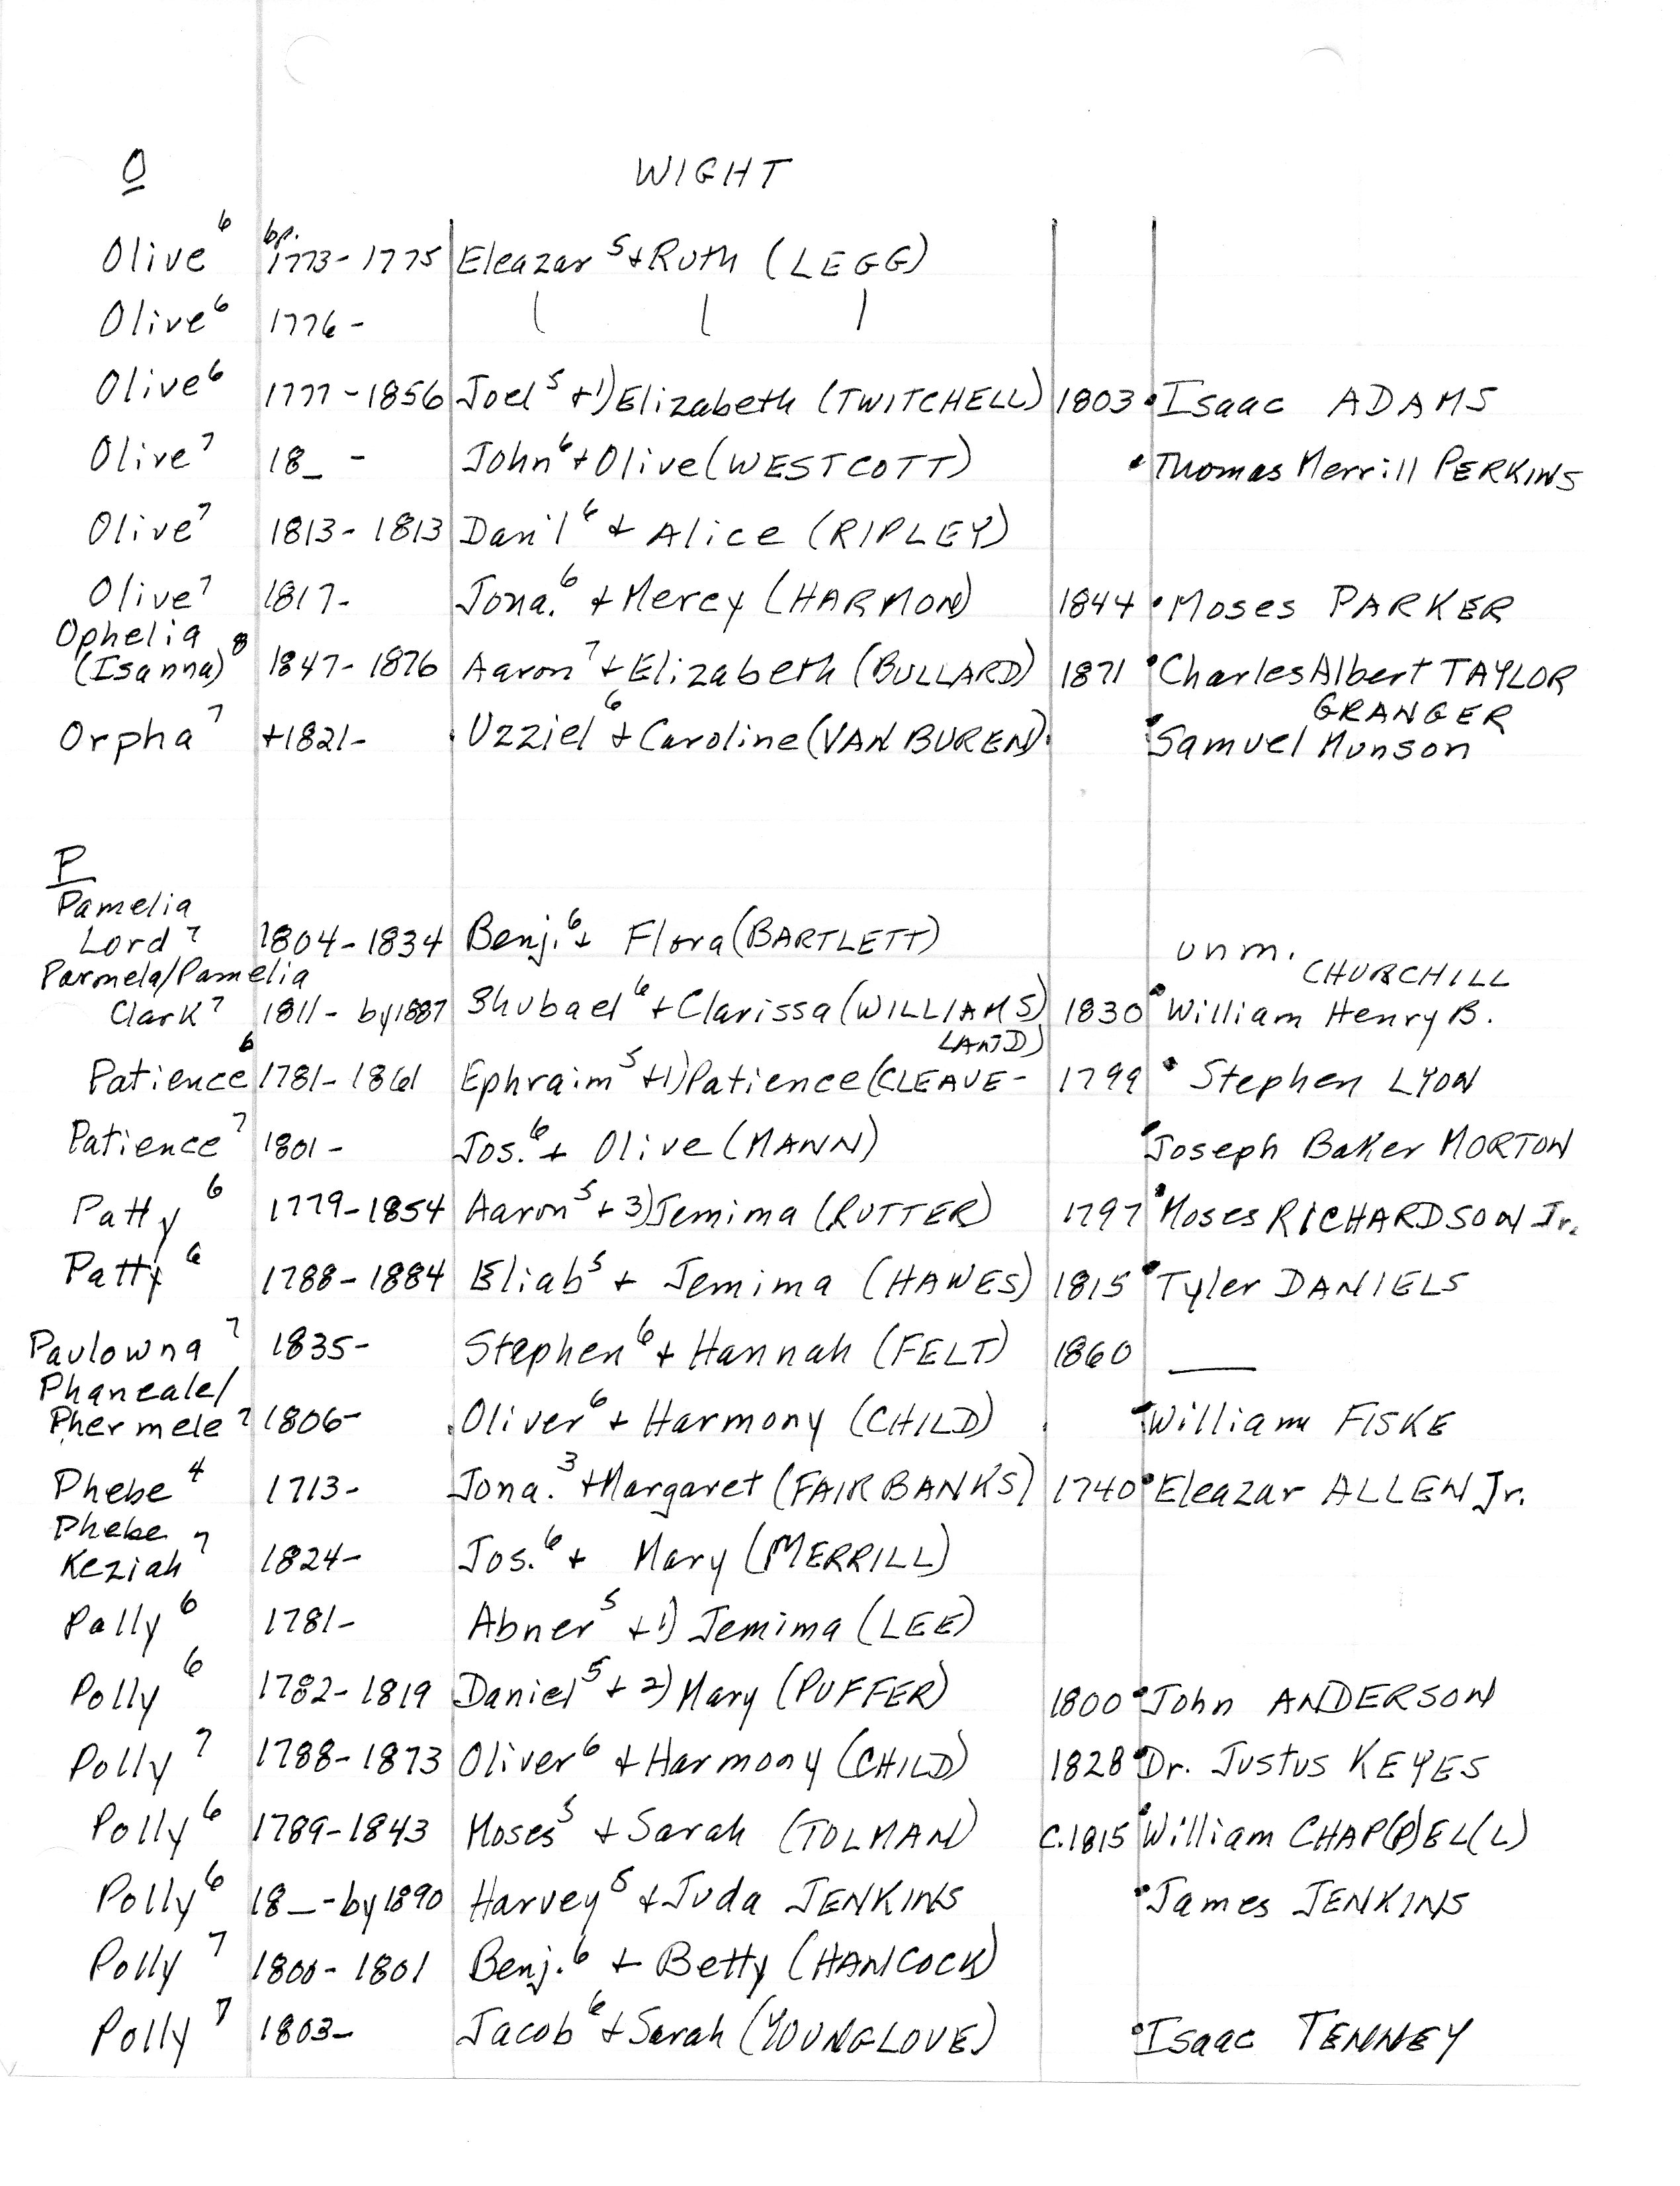 O WIGHT
Olive 6 bp. 1773-1775 Eleazar 5 + Ruth (LEGG)
Olive 6 1776- | | |
Olive 6 1777-1856 Joel 5 + 1) Elizabeth (TWITCHELL) 1803 • Isaac ADAMS
Olive 7 18_ - John 6 + Olive (WESTCOTT) • Thomas Merrill PERKINS
Olive 7 1813-1813 Dan'l 6 + Alice (RIPLEY)
Olive 7 1817- Jona. 6 + Mercy (HARMON) 1844 • Moses PARKER
Ophelia
(Isanna) 8 1847-1876 Aaron 7 + Elizabeth (BULLARD) 1871 • Charles Albert TAYLOR
GRANGER
Orpha 7 +1821- Uzziel 6 + Caroline (VAN BUREN) • Samuel Munson
P
Pamelia
Lord 7 1804-1834 Benj. 6 + Flora (BARTLETT) unm.
Parmela/Pamelia CHURCHILL
Clark 7 1811- by 1887 Shubael 6 + Clarissa (WILLIAMS) 1830 • William Henry B.
LAND)
Patience 6 1781-1861 Ephraim 5 + 1) Patience (CLEAVE- 1799 • Stephen LYON
Patience 7 1801- Jos. 6 + Olive (MANN) • Joseph Baker MORTON
Patty 6 1779-1854 Aaron 5 + 3) Jemima (RUTTER) 1797 • Moses RICHARDSON Jr.
Patty 6 1788-1884 Eliab 5 + Jemima (HAWES) 1815 • Tyler DANIELS
Paulowna 7 1835- Stephen 6 + Hannah (FELT) 1860 —
Phaneale/
Phermele 7 1806- Oliver 6 + Harmony (CHILD) • William FISKE
Phebe 4 1713- Jona. 3 + Margaret (FAIRBANKS) 1740 • Eleazar ALLEN Jr.
Phebe
Keziah 7 1824- Jos. 6 + Mary (MERRILL)
Polly 6 1781- Abner 5 + 1) Jemima (LEE)
Polly 6 1782-1819 Daniel 5 + 2) Mary (PUFFER) 1800 • John ANDERSON
Polly 7 1788-1873 Oliver 6 + Harmony (CHILD) 1828 • Dr. Justus KEYES
Polly 6 1789-1843 Moses 5 + Sarah (TOLMAN) c.1815 • William CHAP(P)EL(L)
Polly 6 18_-by 1890 Harvey 5 + Juda JENKINS • James JENKINS
Polly 7 1800-1801 Benj. 6 + Betty (HANCOCK)
Polly 7 1803- Jacob 6 + Sarah (YOUNGLOVE) • Isaac TENNEY